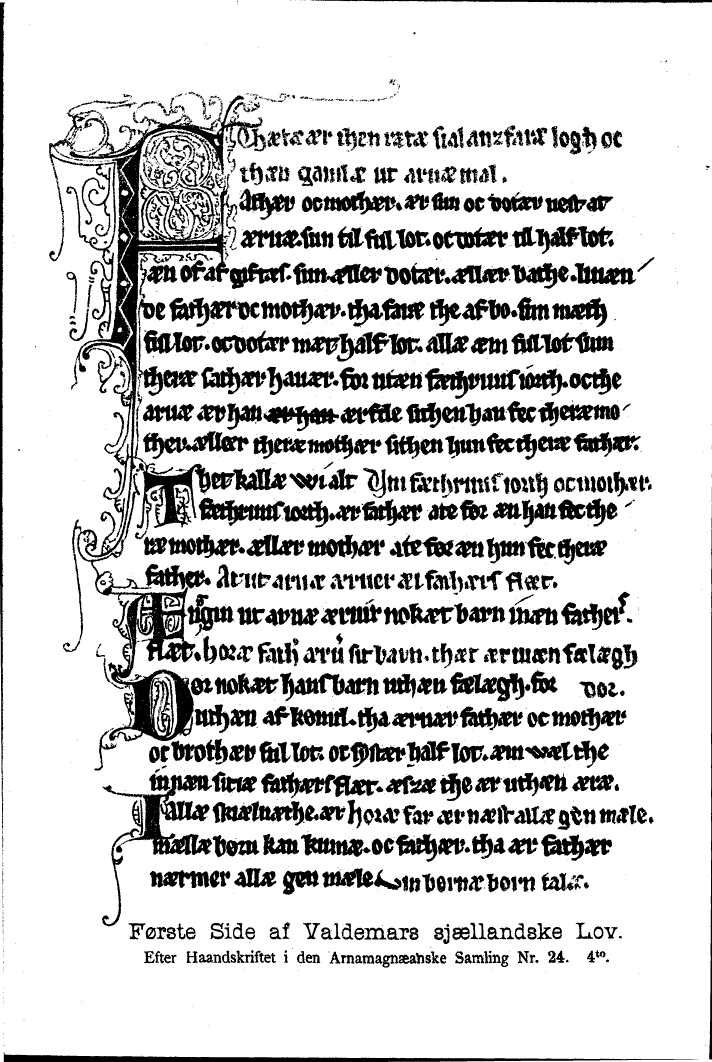 Thætæ ær then rætæ sialanzfaræ logh oc
thæn gamlæ ur aruæ mal.
Athær oc mothær. ær sun oc dotær nest at
æruæ. sun til ful lot. oc dotær til half lot.
æn of af giftæs. sun æller dotær. ællær bathe. liuæn
de fathær oc mothær. tha faræ the af bo. sun mæth
ful lot. oc dotær mæth half lot. allæ æm ful lot sum
theræ fathær hauær. for utæn fæthrinis iorth. oc the
aruæ ær han ær han ærfde sithen han fec theræ mo
ther. ællær theræ mothær sithen hun fec theræ fathær.
Thet kallæ wi alt Um fæthrinis iorth oc mothær.
fæthrinis iorth. ær fathær ate for æn han fec the
ræ mothær. ællær mothær ate for æn hun fec theræ
father. At ut aruæ æruer æi fathærs flæt.
Ængin ut aruæ æruir nokæt barn innæn fathers.
flæt. horæ fath aru sit barn. thær ær utæn fælægh
or nokæt hans barn uthæn fælægh. for dor.
uthæn af komit. tha æruær fathær oc mothær
oc brothær ful lot. oc systær half lot. æm wæl the
innæn sitiæ fathærs flæt. æszæ the ær uthæn æræ.
I allæ skiælnæthe. ær horæ far ær næst allæ gen mæle.
mællæ born kan kumæ. oc fathær. tha ær fathær
nærmer allæ gen mæle um bornæ born tal.
Første Side af Valdemars sjællandske Lov.
Efter Haandskriftet i den Arnamagnæanske Samling Nr. 24. 4to.